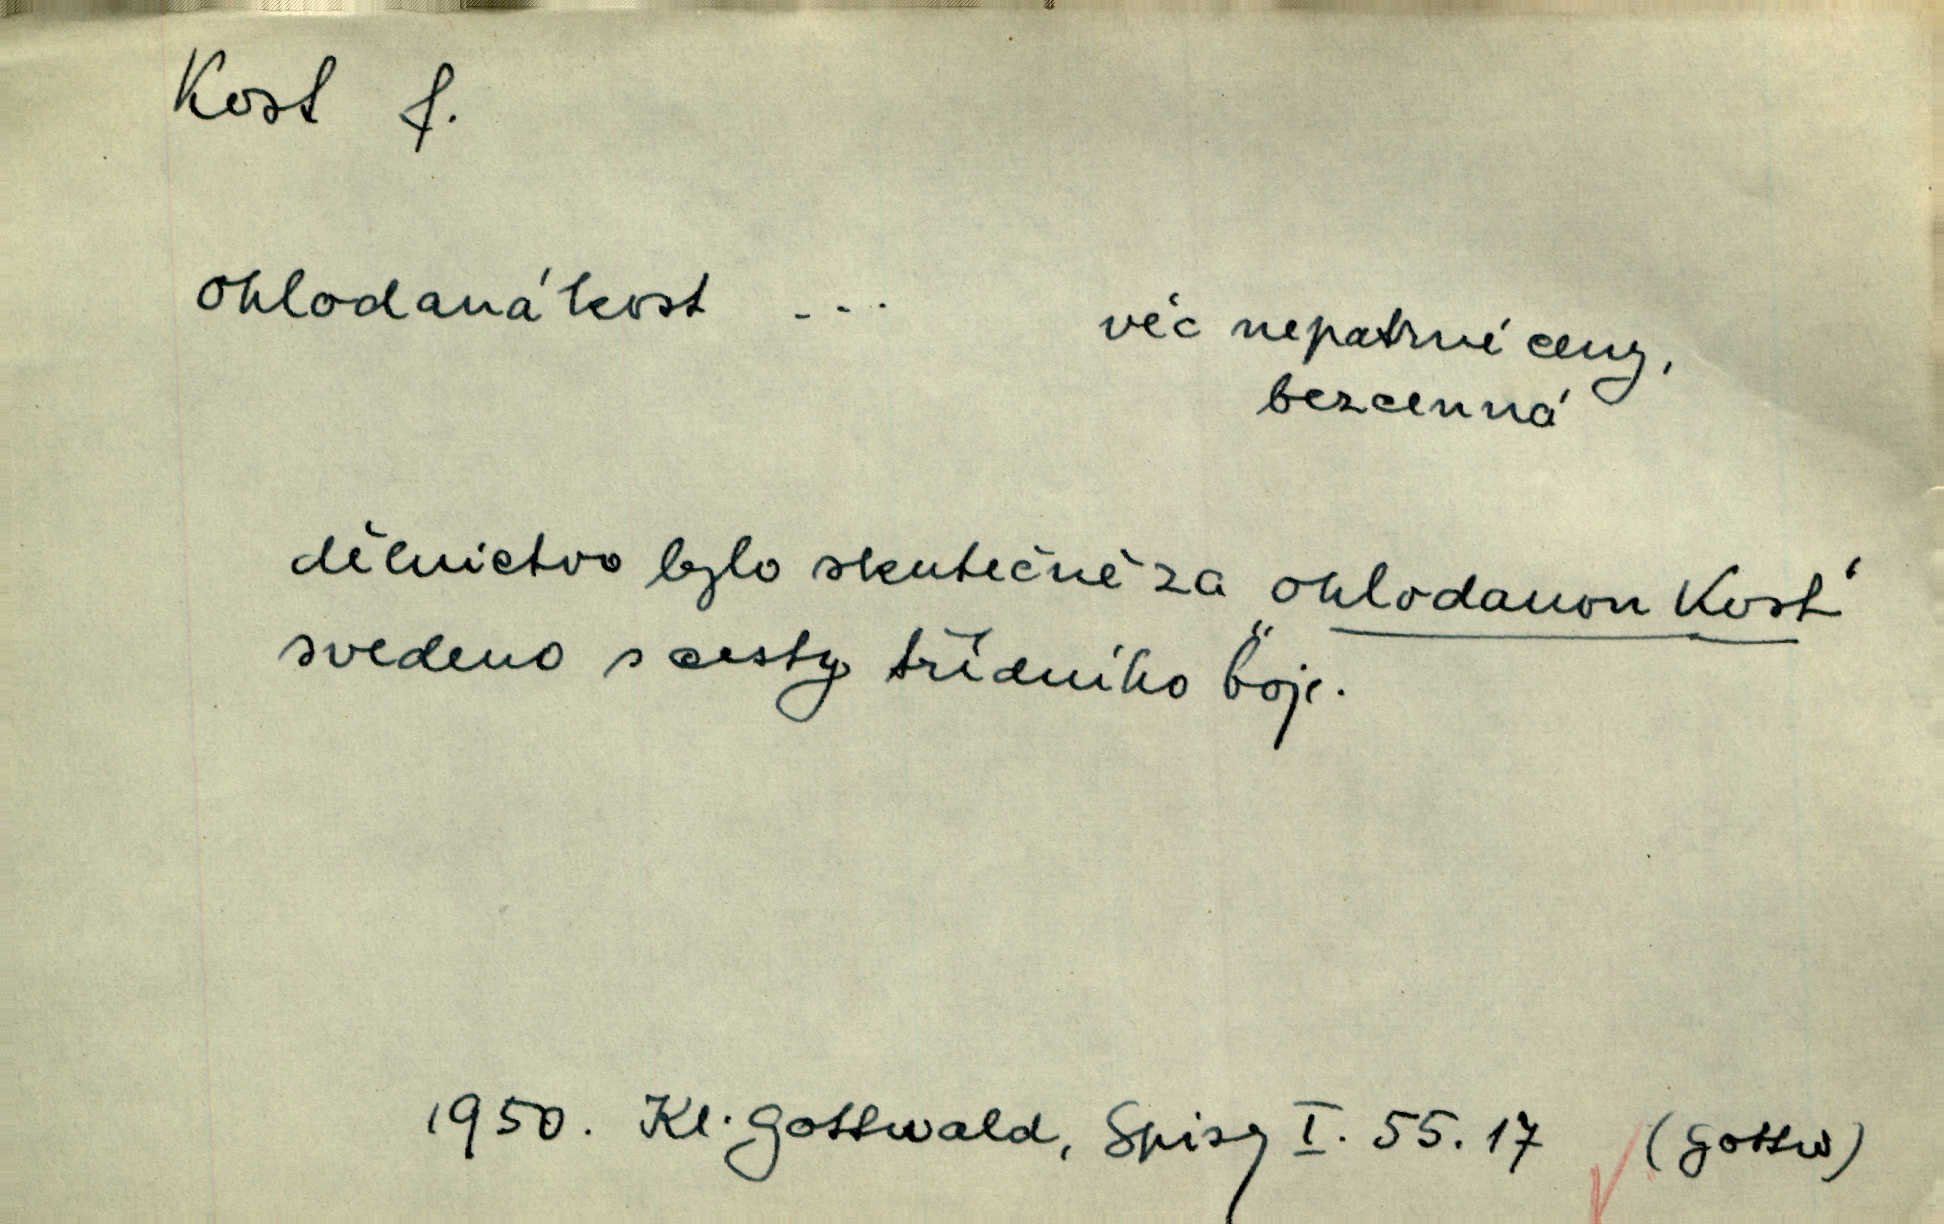 Kost f.
ohlodaná kost ...
věc nepatrné ceny,
bezcenná
dělnictvo bylo skutečně za ohlodanou Kost
svedeno s cesty třídního boje.
1950. Kl. Gottwald, Spisy I. 55. 17 (Gottw)